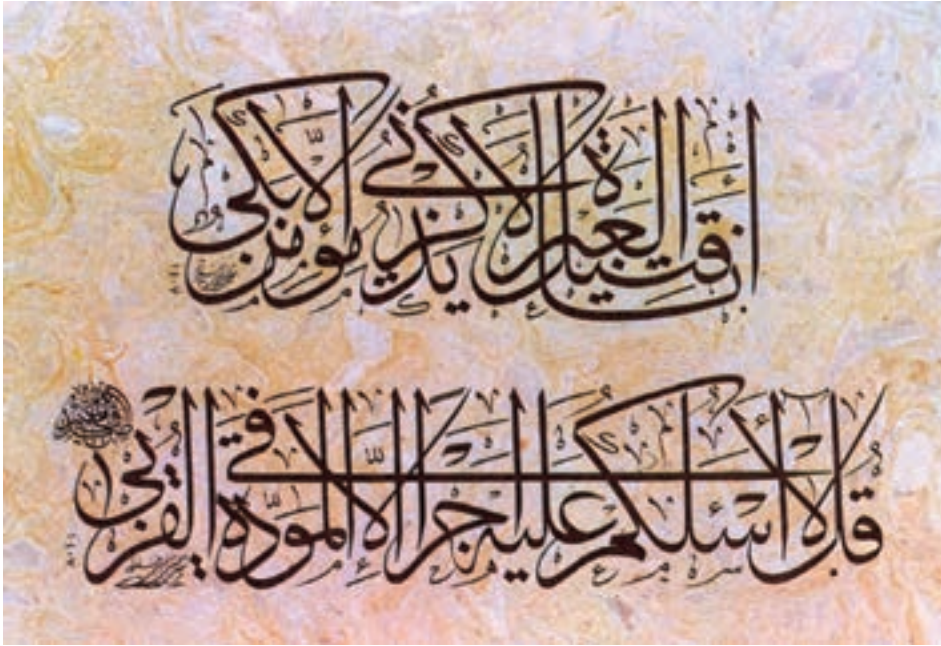 انا قتیل العبرة لا یذکرنی مؤمن الا بکی
قل لا أسئلکم علیه اجرا الا المودة فی القربی